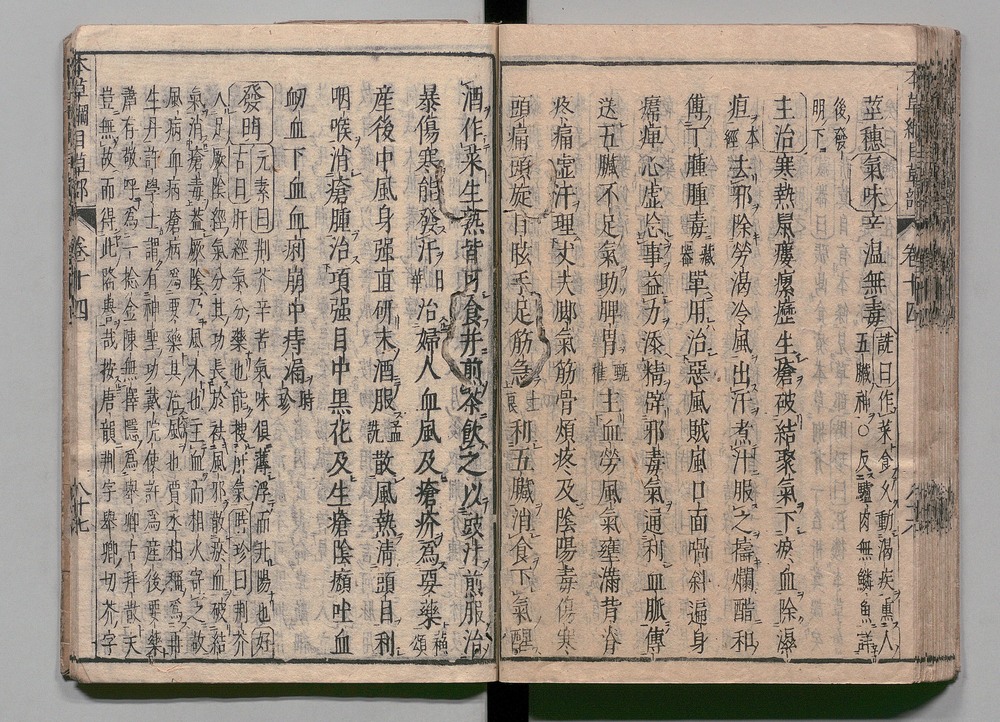 莖穗氣味辛溫無毒詵曰作菜食久動渴疾熏人五臟神○反驢肉無鱗魚詳
後發明下
主治寒熱鼠瘻瘰癧生瘡破結聚氣下瘀血除濕
疸本經去邪除勞渴冷風出汗煮汁服之擣爛醋和
傅丁腫腫毒藏器單用治惡風賊風口面喎斜遍身
𤸷痺心虛忘事益力添精辟邪毒氣通利血脈傳
送五臟不足氣助脾胃甄權主血勞風氣壅滿背脊
疼痛虛汗理丈夫脚氣筋骨煩疼及陰陽毒傷寒
頭痛頭旋目眩手足筋急士良利五臟消食下氣醒
酒作菜生熟皆可食并煎茶飲之以豉汁煎服治
暴傷寒能發汗日華治婦人血風及瘡疥為要藥蘇頌
産後中風身强直研末酒服孟詵散風熱清頭目利
咽喉消瘡腫治項强目中黒花及生瘡陰㿗吐血
衂血下血血痢崩中痔漏時珍
發明元素曰荆芥辛苦氣味俱薄浮而升陽也好古曰肝經氣分藥也能搜肝氣時珍曰荆芥
入足厥陰經氣分其功長於袪風邪散瘀血破結
氣消瘡毒蓋厥陰乃風木也主血而相火寄之故
風病血病瘡病為要藥其治風也賈丞相稱為再
生丹許學士謂有神聖功戴院使許為産後要藥
蕭存敬呼為一捻金陳無擇隱為擧卿古拜散夫
豈無故而得此隆譽哉按唐韻荆字擧卿切芥字
本草綱目草部 卷十四 八十七
本草綱目草部 卷十四